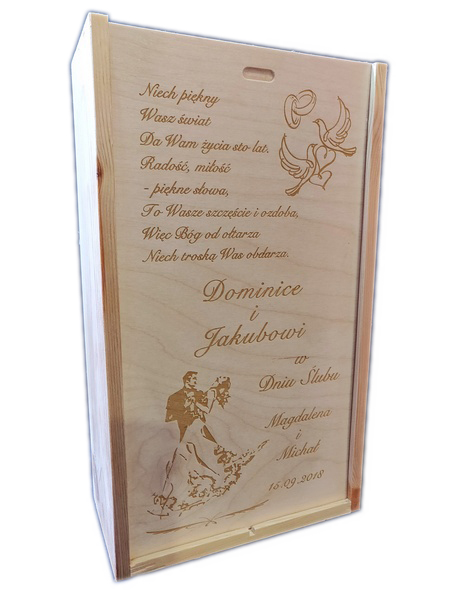 Niech piękny
Wasz świat
Da Wam życia sto lat.
Radość, miłość
- piękne słowa,
To Wasze szczęście i ozdoba,
Więc Bóg od ołtarza
Niech troską Was obdarza.
Dominice
i
Jakubowi
w
Dniu Ślubu
Magdalena
i
Michał
15.09.2018